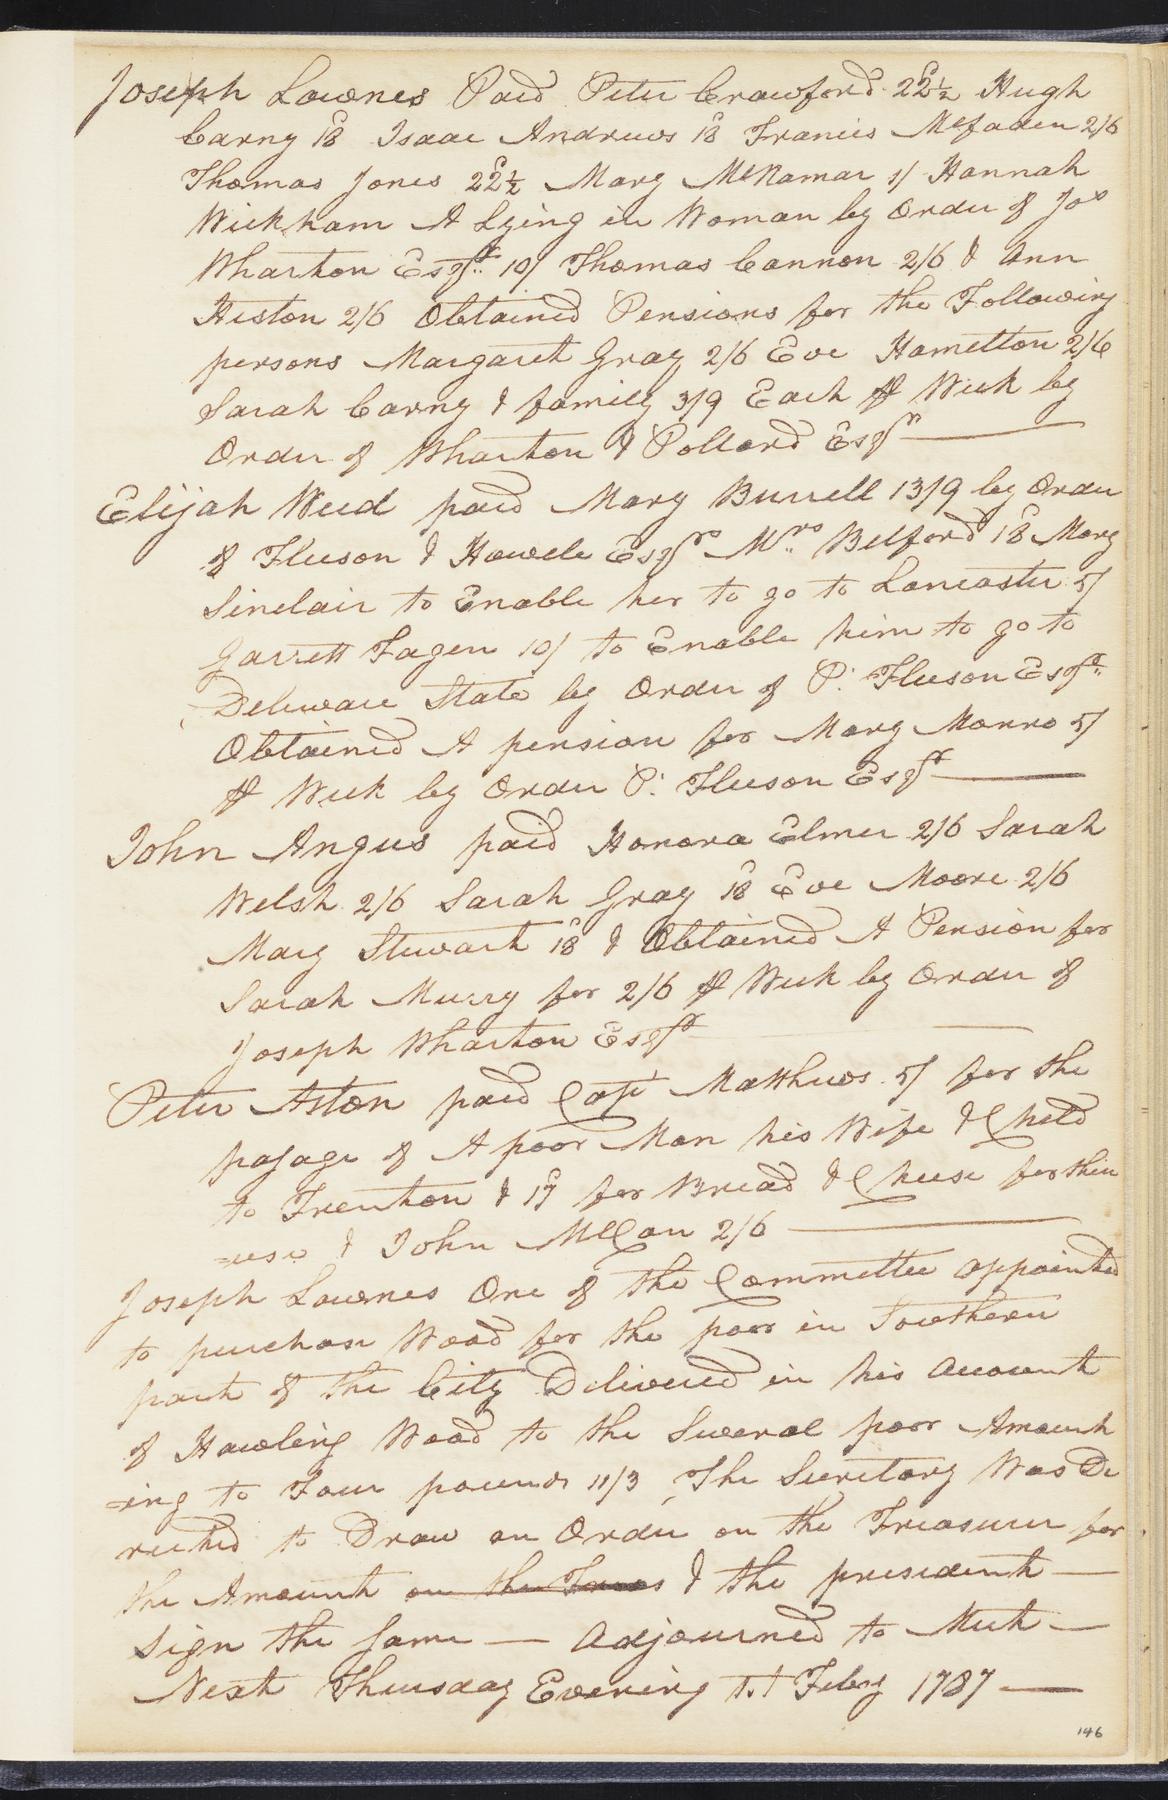 Joseph Lownes Paid Peter Crawford 22½ᵖ Hugh
Carny 18ᵖ Isaac Andrews 18ᵖ Francis McFaden 2/6
Thomas Jones 22½ᵖ Mary McNamar 1/ Hannah
Wickham A Lying in Woman by Order of Jos
Wharton Esqr. 10/ Thomas Cannon 2/6 & Ann
Heston 2/6 Obtained Pensions for the Following
persons Margaret Gray 2/6 Eve Hametton 2/6
Sarah Carny & family 3/9 Each ⅌ Week by
Order of Wharton & Pollard Esqrs
Elijah Weed paid Mary Burrell 13/9 by Order
of Fleeson & Howele Esqrs Mrs. Belford 18ᵖ Mary
Sinclair to Enable her to go to Lancaster 5/
Garrett Fagen 10/ to Enable him to go to
Deleware State by Order of P. Fleeson Esqr.
Obtained A pension for Mary Monro 5/
⅌ Week by Order P. Fleeson Esqr
John Angus paid Honora Elmer 2/6 Sarah
Welsh 2/6 Sarah Gray 18ᵖ Eve Moore 2/6
Mary Stewart 18ᵖ & Obtained A Pension for
Sarah Murry for 2/6 ⅌ Week by Order of
Joseph Wharton Esqr
Peter Aston paid Capt Matthews 5/ for the
pasage of A poor Man his Wife & Cheld
to Trenton & 17ᵖ for Bread & Cheese for thier
=use & John McCan 2/6
Joseph Lownes One of the Committee appointed
to purchase Wood for the poor in Southern
part of the City Delivered in his Account
of Hawling Wood to the Several poor Amount
=ing to Four pounds 11/3 The Secretary Was Di
rected to Draw an Order on the Treasurer for
the Amount on the Treas & the president
Sign the Same — Adjourned to Meet
Next Thursday Evening 1st Feby 1787
146